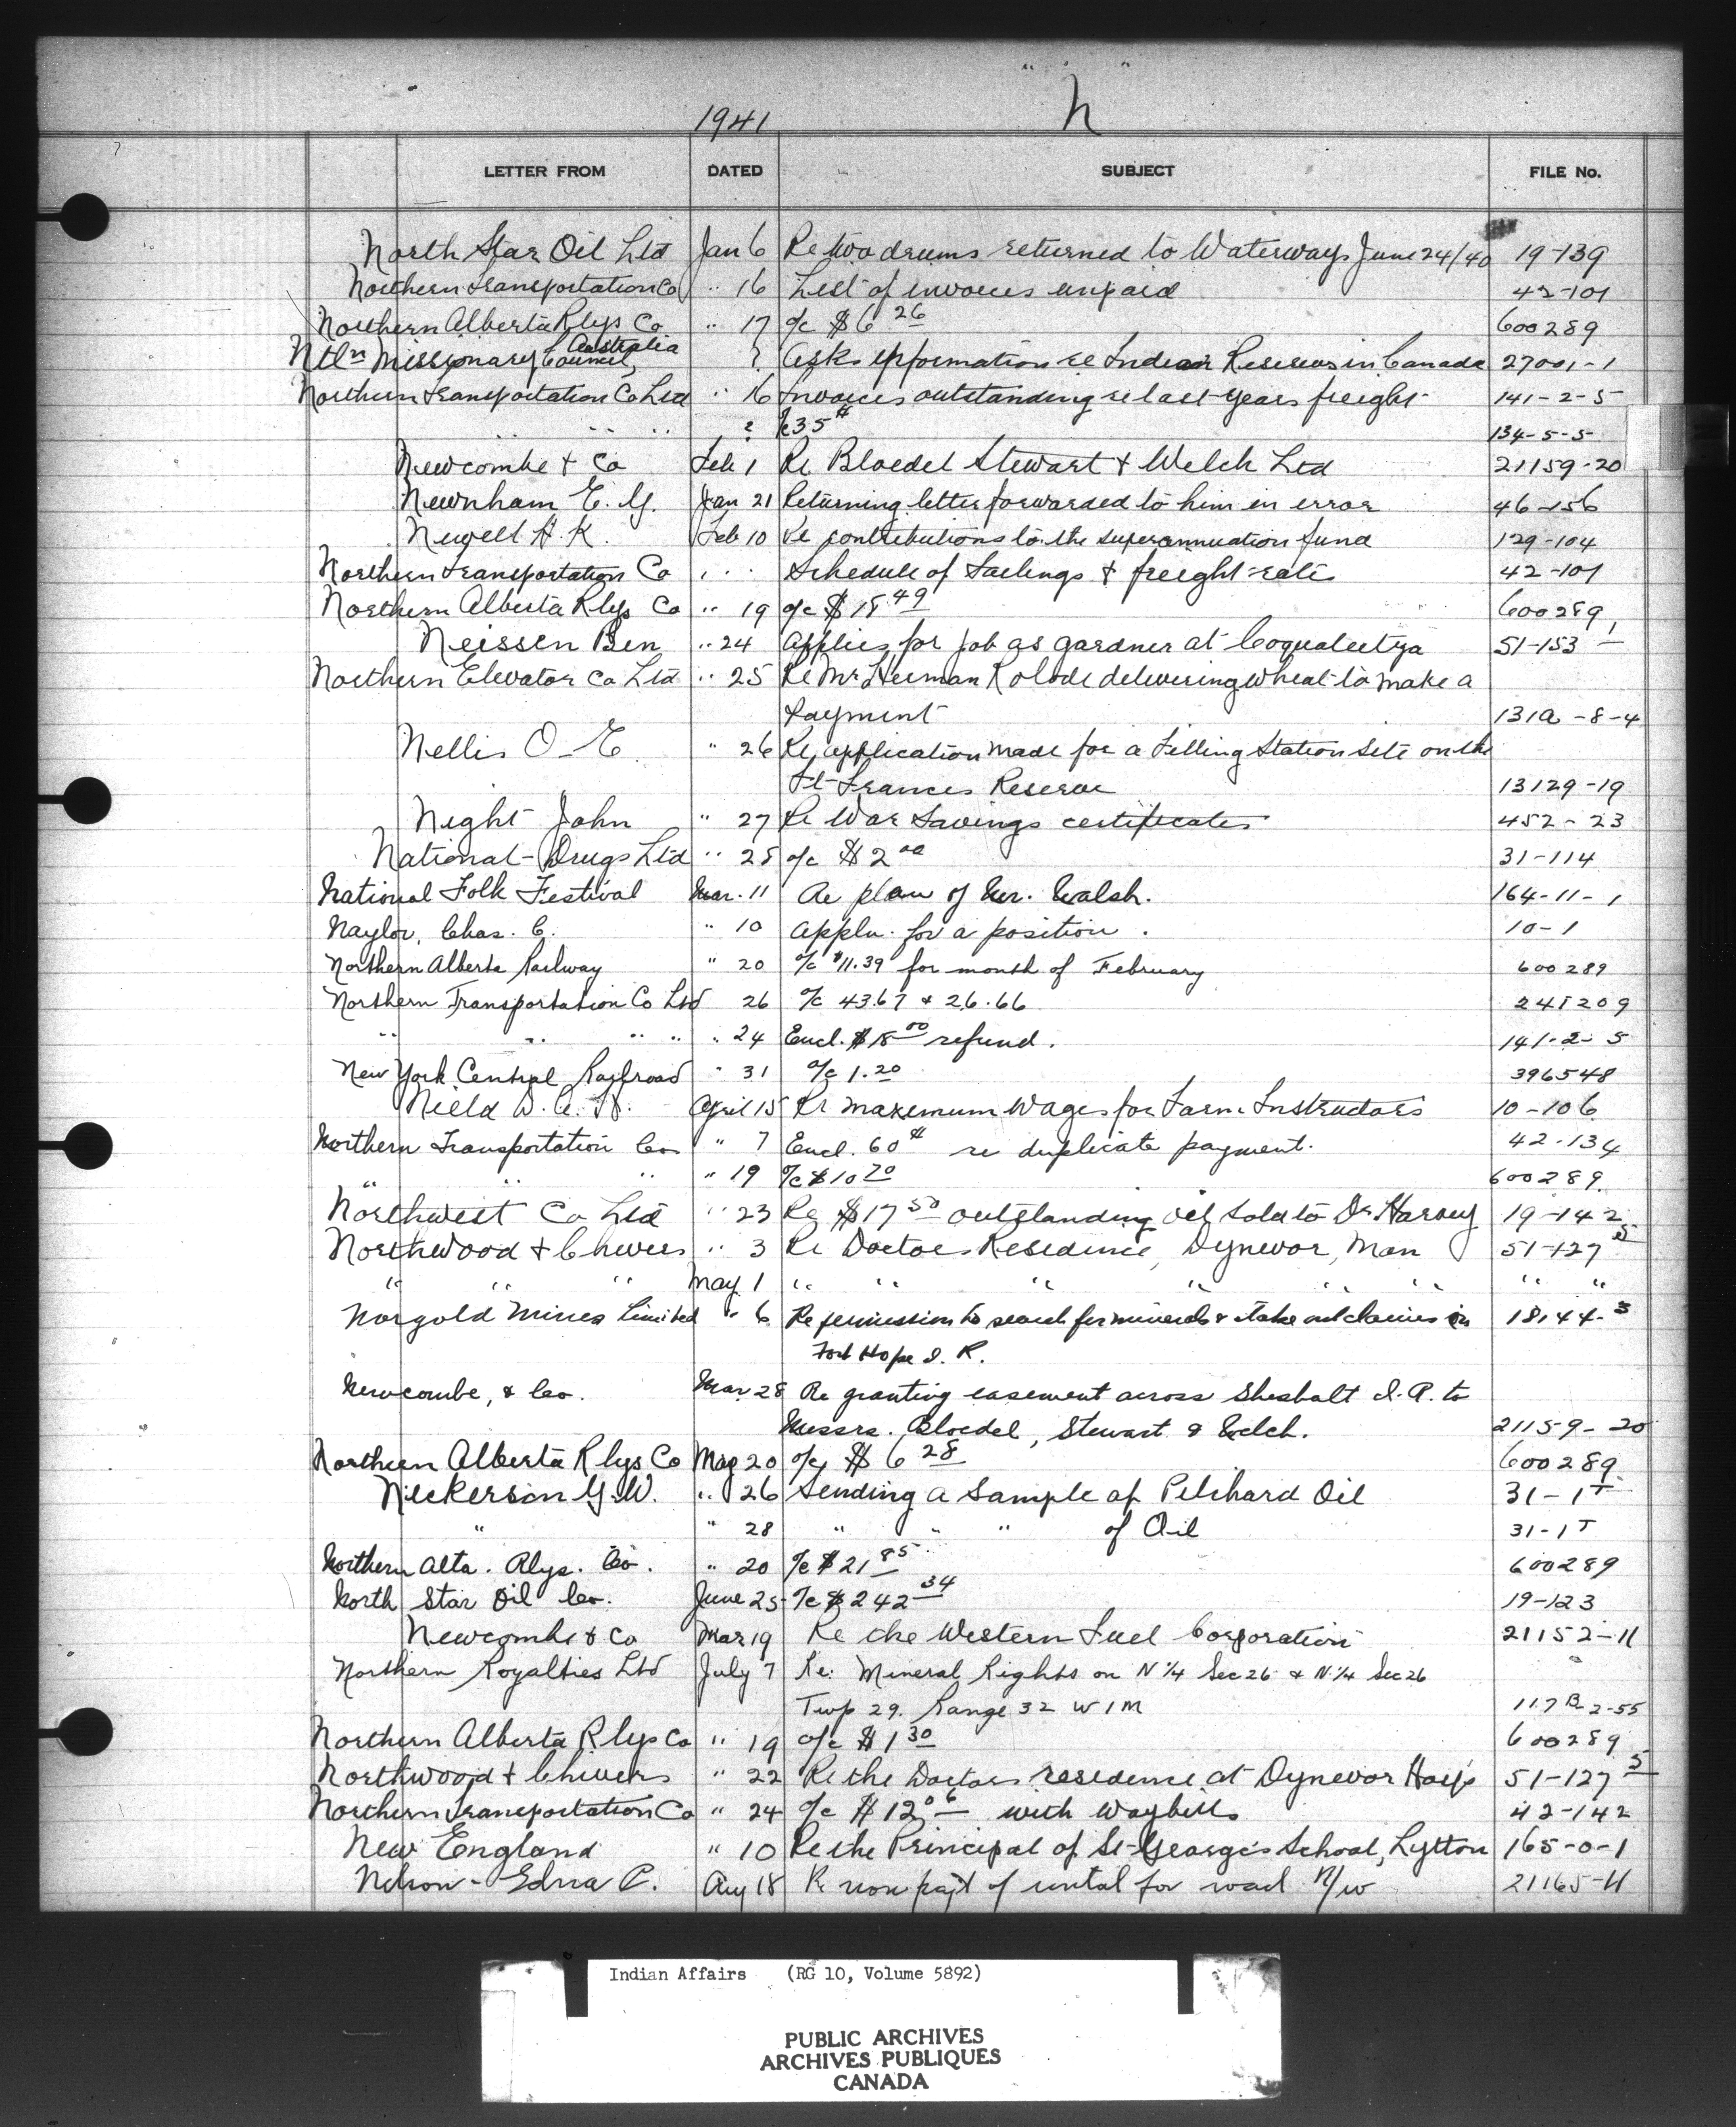 "N"
1941
LETTER FROM DATED SUBJECT FILE No.
North Star Oil Ltd Jan 6 Re two drums returned to Waterways June 24/40 19-139
Northern Transportation Co " 16 List of invoices unpaid 42-101
Northern Alberta Rlys Co " 17 a/c $6 26 600289
Ntln Missionary Council, Australia ? Asks information re Indian Reserves in Canada 27001-1
Northern Transportation Co Ltd " 16 Invoices outstanding re last years freight 141-2-5
" " " " ? 35 134-5-5
Newcombe & Co Feb 1 Re Bloedel Stewart & Welch Ltd 21159-20
Newnham E. G. Jan 21 Returning letter forwarded to him in error 46-156
Newell H. K. Feb 10 Re contributions to the superannuation fund 129-104
Northern Transportation Co " " Schedule of Sailings & freight rates 42-101
Northern Alberta Rlys Co " 19 a/c $18.49 600289
Neissen Ben " 24 Applies for job as gardner at Coqualeetza 51-153
Northern Elevator Co Ltd " 25 Re Mr Herman Kolode delivering wheat to make a
payment 131A-8-4
Nellis O-E " 26 Re application made for a Filling Station site on the
Ft Frances Reserve 13129-19
Night John " 27 Re War Savings certificates 452-23
National Drugs Ltd " 28 a/c $2 00 31-114
National Folk Festival Mar. 11 Re plan of Mr. Walsh. 164-11-1
Naylor, Chas. C. " 10 Appln. for a position. 10-1
Northern Alberta Railway " 20 a/c $11.39 for month of February 600289
Northern Transportation Co Ltd 26 a/c 43.67 & 26.66 241209
" " " " " 24 Encl. $18 00 refund. 141-2-5
New York Central Railroad " 31 a/c 1.20 396548
Nield April 15 Re maxemum Wages for Farm Instructors 10-106
Northern Transportation Co " 7 Encl. 60 re duplicate payment. 42-134
" " " " 19 a/c $10 70 600289
Northwest Co Ltd " 23 Re $17 50 outstanding oil sold to Dr Harvey 19-142
Northwood & Chivers " 3 Re Doctors Residence, Dynevor, Man 51-127 5
" " " May 1 " " " " " " " "
Norgold Mines Limited " 6 Re permission to search for minerals & stake out claims in 18144-3
Fort Hope I. R.
Newcombe, & Co. Mar 28 Re granting easement across Sheshalt I.R. to
Messrs. Bloedel, Stewart & Welch. 21159-20
Northern Alberta Rlys Co May 20 a/c $6 28 600289
Nickerson G.W. " 26 Sending a Sample of Pilchard Oil 31-1T
" " 28 " " " of Oil 31-1T
Northern Alta. Rlys. Co. " 20 a/c $21 85 600289
North Star Oil Co. June 25 a/c $242 34 19-123
Newcombe & Co Mar 19 Re the Western Fuel Corporation 21152-11
Northern Royalties Ltd July 7 Re: Mineral Rights on N 1/4 Sec 26 & N 1/4 Sec 26
Twp 29. Range 32 W 1 M 117B-2-55
Northern Alberta Rlys Co " 19 a/c $1 30 600289
Northwood & Chivers " 22 Re the Doctors residence at Dynevor Hosp 51-127 5
Northern Transportation Co " 24 a/c $12 06 with Waybills 42-142
New England " 10 Re the Principal of St George's School, Lytton 165-0-1
Nelson - Edna C. Aug 18 Re non pay't of rental for road R/w 21165-11
Indian Affairs (RG 10, Volume 5892)
PUBLIC ARCHIVES
ARCHIVES PUBLIQUES
CANADA